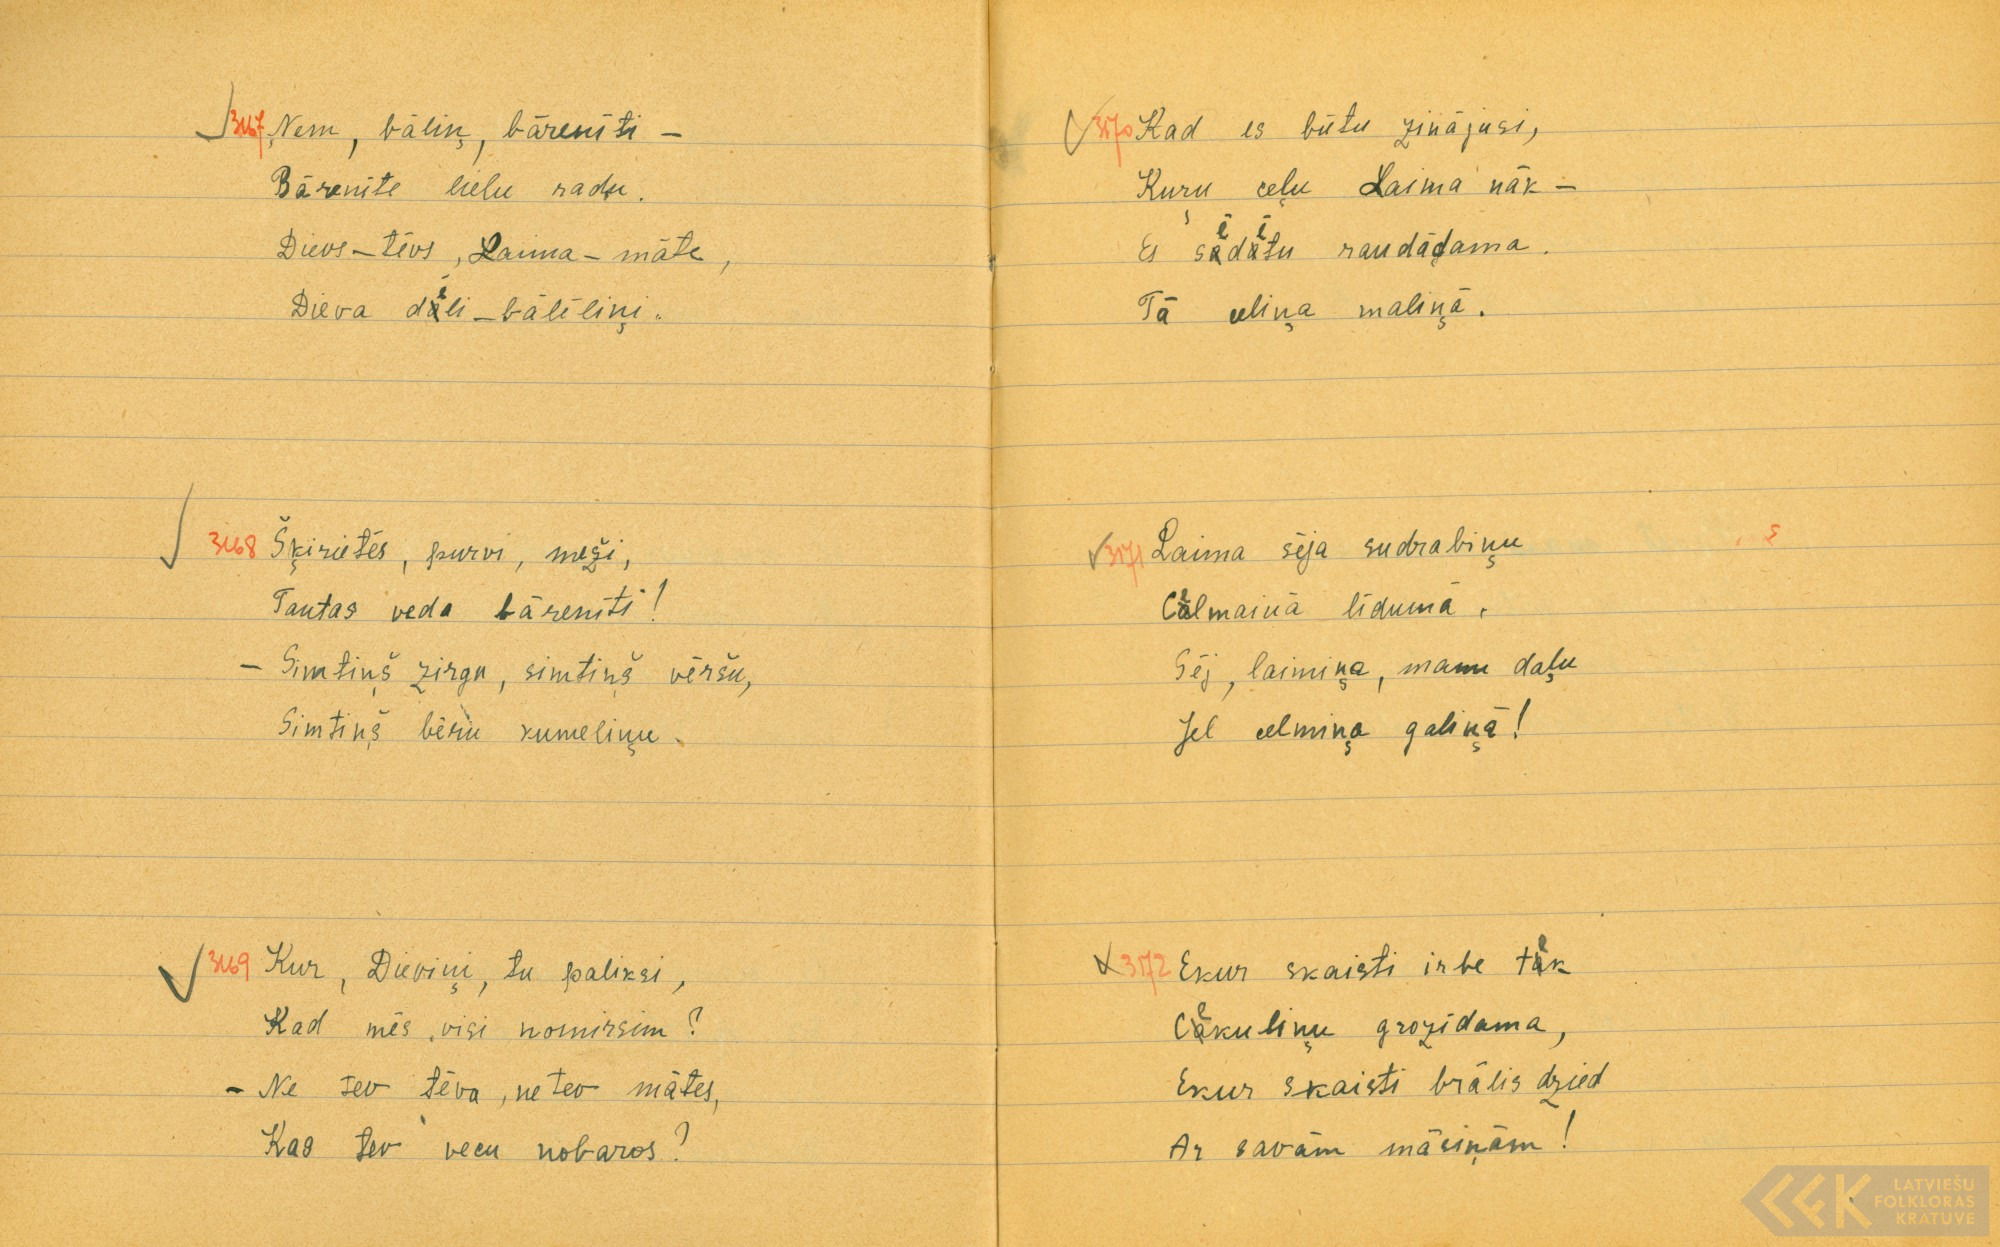 3167 Ņem, bāliņ, bārenīti –
Bārenīte lielu radu.
Dievs – tēvs, Laima – māte,
Dieva dēli – bālēliņi.
3168 Šķirietēs, purvi, meži,
Tautas veda bārenīti!
– Simtiņš zirgu, simtiņš vēršu,
Simtiņš bēru kumeliņu.
3169 Kur, Dieviņi, tu paliksi,
Kad mēs visi nomirsim?
– Ne tev tēva, ne tev mātes,
Kas tev vecu nobaros?
3170 Kad es būtu zinājusi,
Kuŗu ceļu Laima nāk –
Es sēdētu raudādama.
Tā celiņa maliņā.
3171 Laima sēja sudrabiņu
Celmainā līdumā.
Sēj, laimiņa, manu daļu
Jel celmiņa galiņā!
3172 Ekur skaisti irbe tek
Cekuliņu grozīdama,
Ekur skaisti brālis dzied
Ar savām māsiņām!
LATVIEŠU
FOLKLORAS
KRĀTUVE